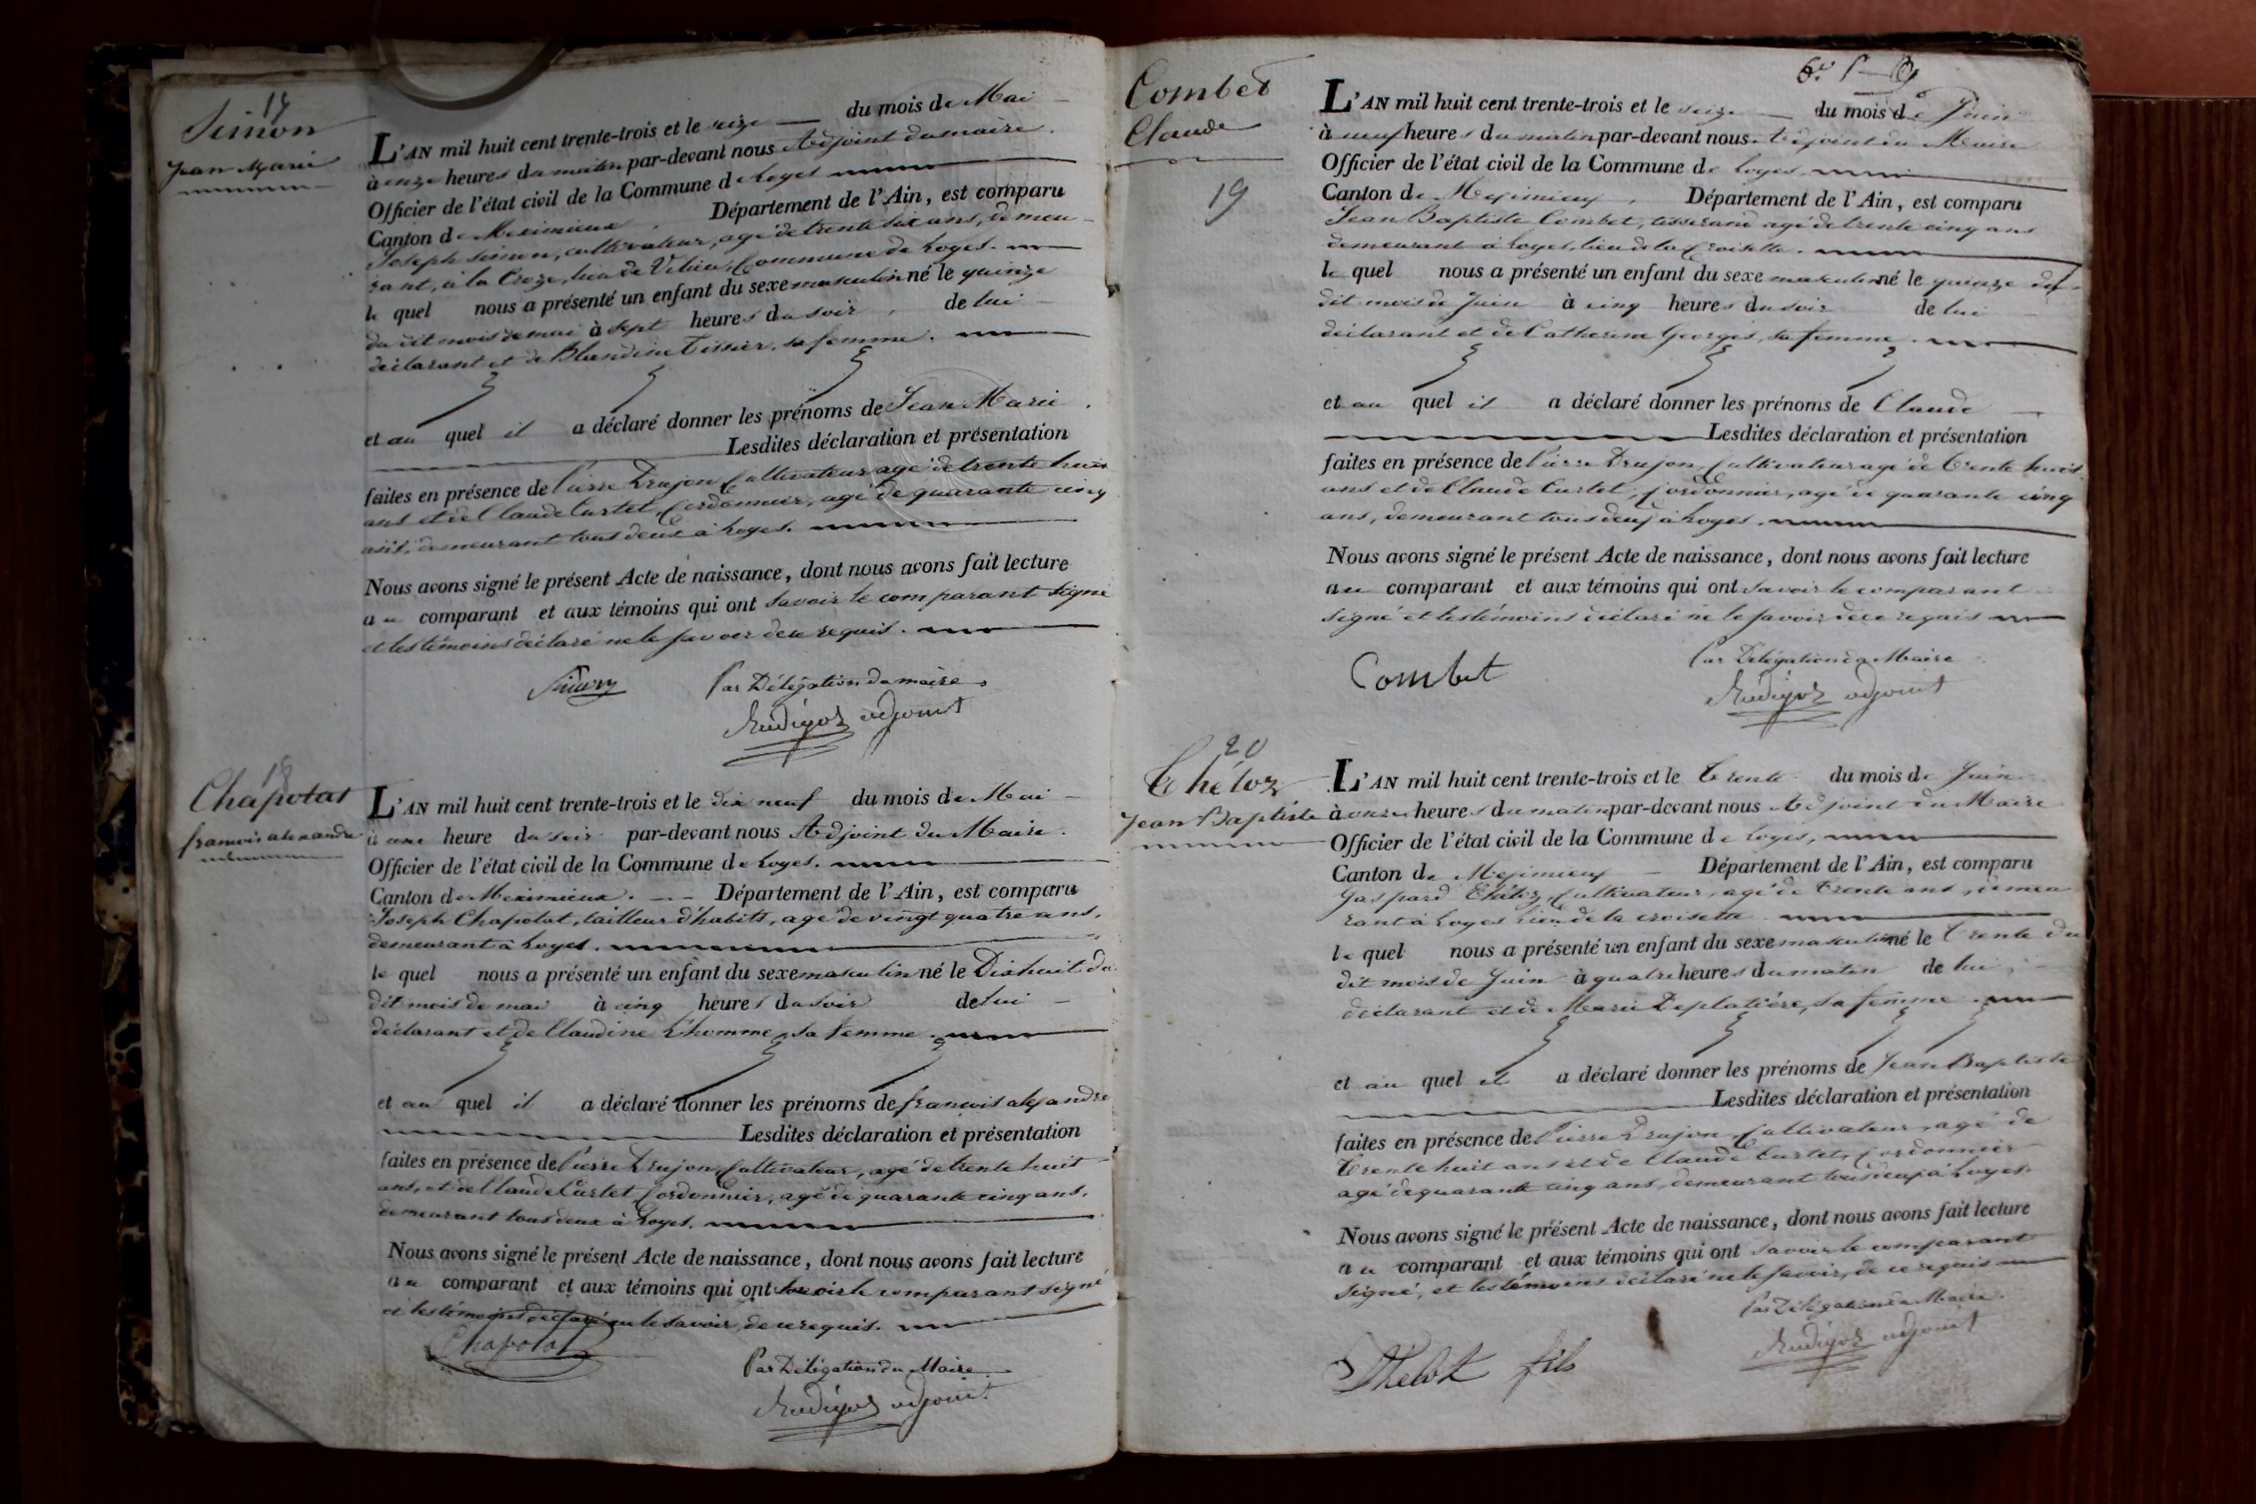 17
Simon
Jean Marie
L'AN mil huit cent trente-trois et le seize du mois de Mai
à onze heures du matin par-devant nous Adjoint du maire.
Officier de l'état civil de la Commune de Loyes
Canton de Meximieux. Département de l'Ain, est comparu
Joseph Simon, cultivateur, agé de trente six ans, demeu-
rant, à la Croze, lieu de Commune de Loyes.
le quel nous a présenté un enfant du sexe masculin né le quinze
du dit mois de mai à sept heures du soir, de lui
déclarant et de Blandine Tissier, sa femme.
et au quel il a déclaré donner les prénoms de Jean Marie.
Lesdites déclaration et présentation
faites en présence de Pierre Drujon Cultivateur agé de trente huit
ans et de Claude Curtet, Cordonnier, agé de quarante cinq
ans, demeurant tous deux à Loyes.
Nous avons signé le présent Acte de naissance, dont nous avons fait lecture
au comparant et aux témoins qui ont savoir le comparant signé
et les témoins déclaré ne le savoir de ce requis.
Par Délégation du maire
adjoint
18
Chapotat
francois alexandre
L'AN mil huit cent trente-trois et le dix neuf du mois de Mai
à une heure du soir par-devant nous Adjoint du Maire.
Officier de l'état civil de la Commune de Loyes.
Canton de Meximieux. Département de l'Ain, est comparu
Joseph Chapotat, tailleur d'habits, agé de vingt quatre ans,
demeurant à Loyes.
le quel nous a présenté un enfant du sexe masculin né le Dixhuit du
dit mois de mai à cinq heures du soir de lui
déclarant et de Claudine L'homme, sa femme.
et au quel il a déclaré donner les prénoms de françois alexandre
Lesdites déclaration et présentation
faites en présence de Pierre Drujon, Cultivateur, agé de trente huit
ans, et de Claude Curtet, Cordonnier, agé de quarante cinq ans.
demeurant tous deux à Loyes.
Nous avons signé le présent Acte de naissance, dont nous avons fait lecture
au comparant et aux témoins qui ont savoir le comparant signé
et les témoins déclaré ne le savoir, de ce requis.
Chapotat
Par Délégation du Maire
adjoint
Combet
Claude
19
L'AN mil huit cent trente-trois et le seize du mois de Juin
à neuf heures du matin par-devant nous Adjoint du Maire
Officier de l'état civil de la Commune de Loyes.
Canton de Meximieux, Département de l'Ain, est comparu
Jean Baptiste Combet, tisserand agé de trente cinq ans
demeurant à Loyes, lieu de la Croisette.
le quel nous a présenté un enfant du sexe masculin né le quinze du
dit mois de Juin à cinq heures du soir de lui
déclarant et de Catherine Georges, sa femme.
et au quel il a déclaré donner les prénoms de Claude
Lesdites déclaration et présentation
faites en présence de Pierre Drujon, Cultivateur agé de trente huit
ans et de Claude Curtet, Cordonnier, agé de quarante cinq
ans, demeurant tous deux à Loyes.
Nous avons signé le présent Acte de naissance, dont nous avons fait lecture
au comparant et aux témoins qui ont savoir le comparant
signé et les témoins déclaré ne le savoir, de ce requis
Combet
Par Délégation du Maire
adjoint
20
Théloz
Jean Baptiste
L'AN mil huit cent trente-trois et le Trente du mois de Juin
à onze heures du matin par-devant nous Adjoint du Maire
Officier de l'état civil de la Commune de Loyes,
Canton de Meximieux Département de l'Ain, est comparu
Gaspard Théloz, Cultivateur, agé de trente ans, demeu
rant à Loyes lieu de la croisette
le quel nous a présenté un enfant du sexe masculin né le Trente du
dit mois de Juin à quatre heures du matin de lui,
déclarant et de Marie Deplatière, sa femme.
et au quel il a déclaré donner les prénoms de Jean Baptiste
Lesdites déclaration et présentation
faites en présence de Pierre Drujon, Cultivateur, agé de
Trente huit ans et de Claude Curtet, Cordonnier
agé de quarante cinq ans, demeurant tous deux à Loyes.
Nous avons signé le présent Acte de naissance, dont nous avons fait lecture
au comparant et aux témoins qui ont savoir le comparant
signé, et les témoins déclaré ne le savoir, de ce requis
Par Délégation du Maire.
adjoint
Thelot fils